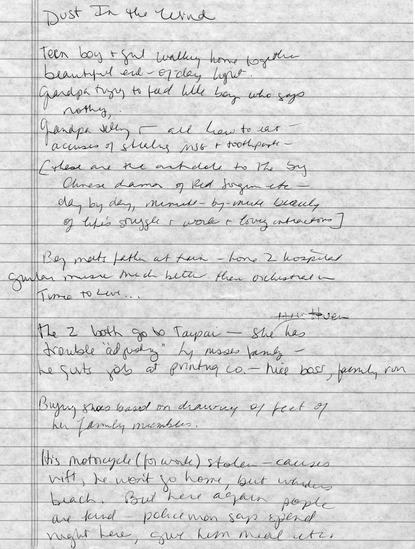 Dust In the Wind
Teen boy + girl walking home together
beautiful end-of-day light.
Grandpa trying to feed little boy who says
nothing,
Grandpa telling all how to eat -
accuses of stealing MSG + toothpaste -
[these are the antidote to the big
Chinese dramas of Red Sorghum etc -
day by day, minute-by-minute beauty
of life's struggle + work + loving interactions]
Boy meets father at train - home 2 hospital
guitar music much better than orchestral in
Time to Live...
The 2 both go to Taipei - she has
trouble "adjusting" by misses family -
he gets job at printing co. - nice boss, family run
Buying shoes based on drawing of feet of
her family members.
His motorcycle (for work) stolen - causes
rift, he won't go home, but wanders
beach. But here again people
are kind - policeman says spend
night here, give him meal etc.